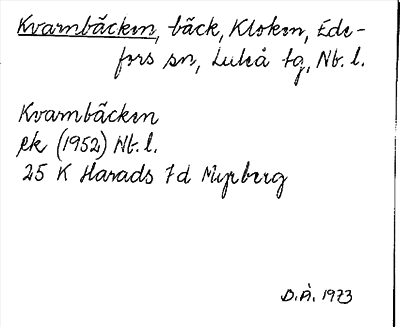 Kvarnbäcken, bäck, Kloken, Ede-
fors sn, Luleå tg, Nb. l.
Kvarnbäcken
ek (1952) Nb. l.
25 K Harads 7d Myrberg
D.Å. 1973